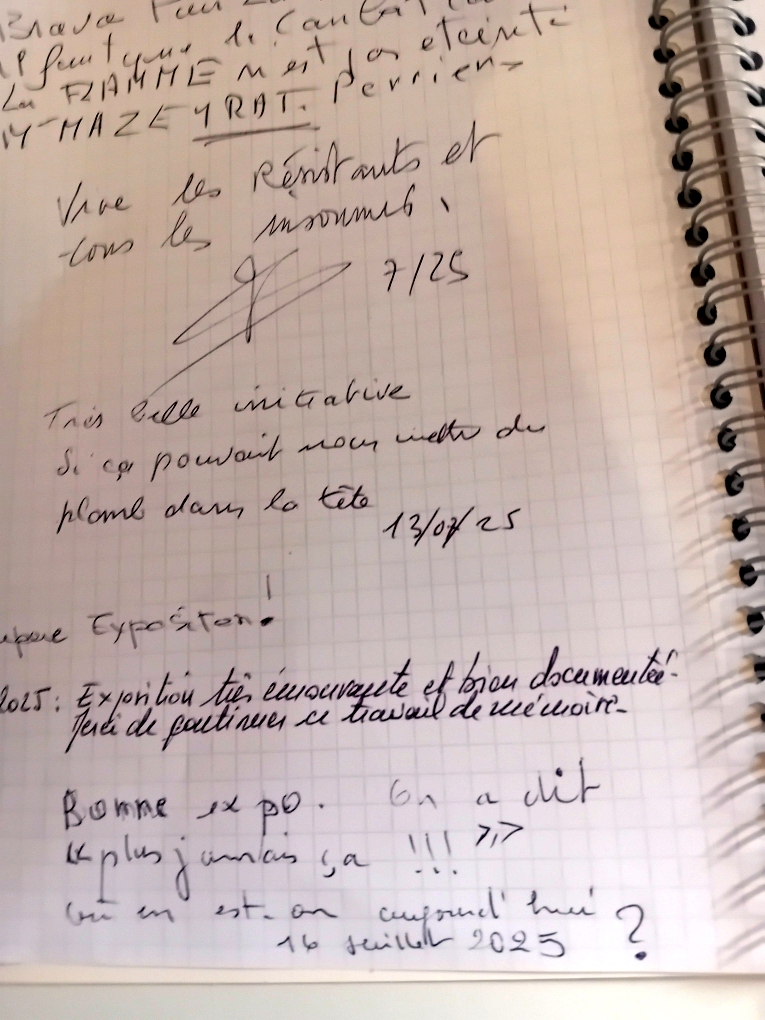 Bravo
Il faut que le Cantal
La FLAMME n'est pas éteinte
MAZEYRAT. Perrier
Vive les Résistants et
tous les insoumis.
7/25
Très belle initiative
Si ça pouvait nous mettre du
plomb dans la tête
13/07/25
Exposition!
2025: Exposition très émouvante et bien documentée.
Merci de continuer ce travail de mémoire.
Bonne expo. On a dit
« plus jamais ça !!! »
où en est-on aujourd'hui
16 Juillet 2025 ?